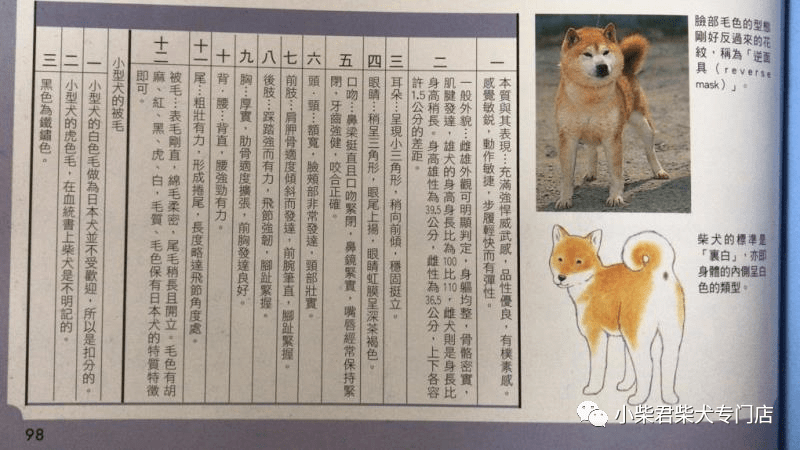 一
本質與其表現…充滿強悍威武感，品性優良，有樸素感。
感覺敏銳，動作敏捷，步履輕快而有彈性。
二
一般外貌…雌雄外觀可明顯判定，身軀均整，骨骼密實，
肌腱發達，雄犬的身高身長比為100比110，雌犬則是身長比
身高稍長。身高雄性為39.5公分，雌性為36.5公分，上下各容
許1.5公分的差距。
三
耳朵…呈現小三角形，稍向前傾，穩固挺立。
四
眼睛…稍呈三角形，眼尾上揚，眼睛虹膜呈深茶褐色。
五
口吻…鼻梁挺直且口吻緊閉，鼻鏡緊實，嘴唇經常保持緊
閉，牙齒強健，咬合正確。
六
頭．頸…額寬，臉頰部非常發達，頸部壯實。
七
前肢…肩胛骨適度傾斜而發達，前腕筆直，腳趾緊握。
八
後肢…踩踏強而有力，飛節強韌，腳趾緊握。
九
胸…厚實，肋骨適度擴張，前胸發達良好。
十
背．腰…背直，腰強勁有力。
十一
尾…粗壯有力，形成捲尾，長度略達飛節角度處。
十二
被毛…表毛剛直，綿毛柔密，尾毛稍長且開立。毛色有胡
麻、紅、黑、虎、白，毛質、毛色保有日本犬的特質特徵
即可。
小型犬的被毛
一
小型犬的白色毛做為日本犬並不受歡迎，所以是扣分的。
二
小型犬的虎色毛，在血統書上柴犬是不明記的。
三
黑色為鐵鏽色。
臉部毛色的型態
剛好反過來的花
紋，稱為「逆面
具（reverse
mask）」。
柴犬的標準是
「裏白」，亦即
身體的內側呈白
色的類型。
98
小柴君柴犬专门店